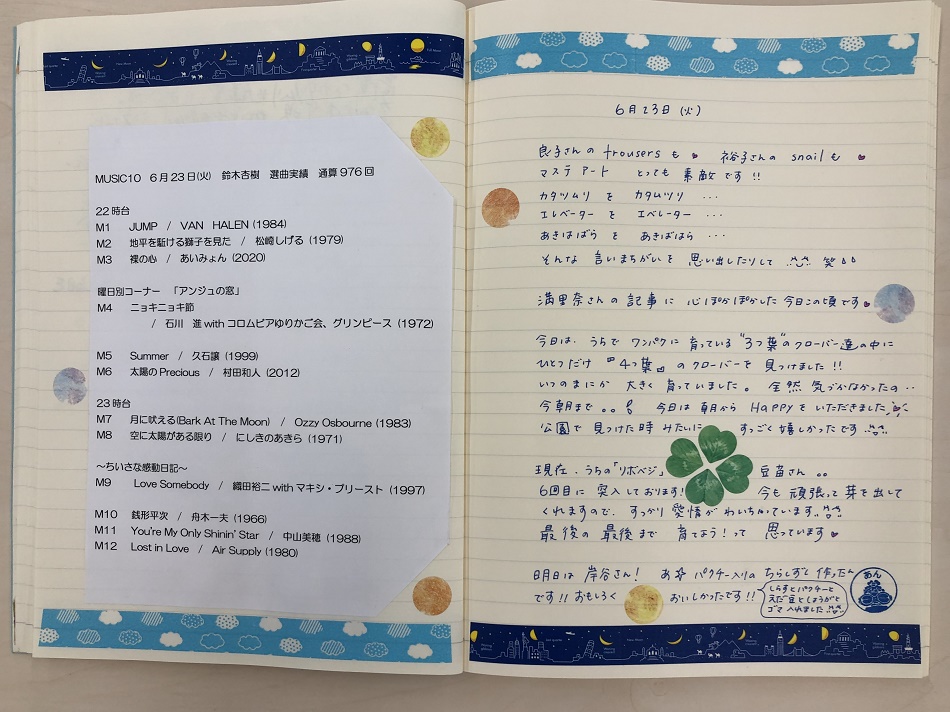 MUSIC10 6月23日(火) 鈴木杏樹 選曲実績 通算976回
22時台
M1 JUMP / VAN HALEN (1984)
M2 地平を駈ける獅子を見た / 松崎しげる (1979)
M3 裸の心 / あいみょん (2020)
曜日別コーナー 「アンジュの窓」
M4 ニョキニョキ節
/ 石川 進withコロムビアゆりかご会、グリンピース (1972)
M5 Summer / 久石譲 (1999)
M6 太陽のPrecious / 村田和人 (2012)
23時台
M7 月に吠える(Bark At The Moon) / Ozzy Osbourne (1983)
M8 空に太陽がある限り / にしきのあきら (1971)
～ちいさな感動日記～
M9 Love Somebody / 織田裕二withマキシ・プリースト (1997)
M10 銭形平次 / 舟木一夫 (1966)
M11 You're My Only Shinin' Star / 中山美穂 (1988)
M12 Lost in Love / Air Supply (1980)
6月23日(火)
良子さんの trousers も 裕子さんの snail も
マステアート とっても 素敵です!!
カタツムリ を カタムツリ ・・・
エレベーター を エベレーター ・・・
あきはばら を あきばはら ・・・
そんな 言いまちがいを 思い出したりして 笑
満里奈さんの 記事に 心ぽかぽかした 今日この頃です
今日は、うちで ワンパクに 育っている "3つ葉"のクローバー達の中に
ひとつだけ 『4つ葉』のクローバーを 見つけました!!
いつのまにか 大きく 育っていました。 全然 気づかなかったの・・
今朝まで。。 今日は 朝から Happyを いただきました
公園で 見つけた時 みたいに すっごく 嬉しかったです
現在、うちの「リボベジ」 豆苗さん 。。
6回目に 突入しております! 今も 頑張って 芽を出して
くれますので、すっかり 愛情が わいちゃっています
最後の 最後まで 育てよう! って 思っています
明日は 岸谷さん! あ パクチー入りの ちらしずし 作ったん
です!! おもしろく おいしかったです!!
しらすとパクチーと
えだ豆としょうがと
ゴマ 入れました
あん